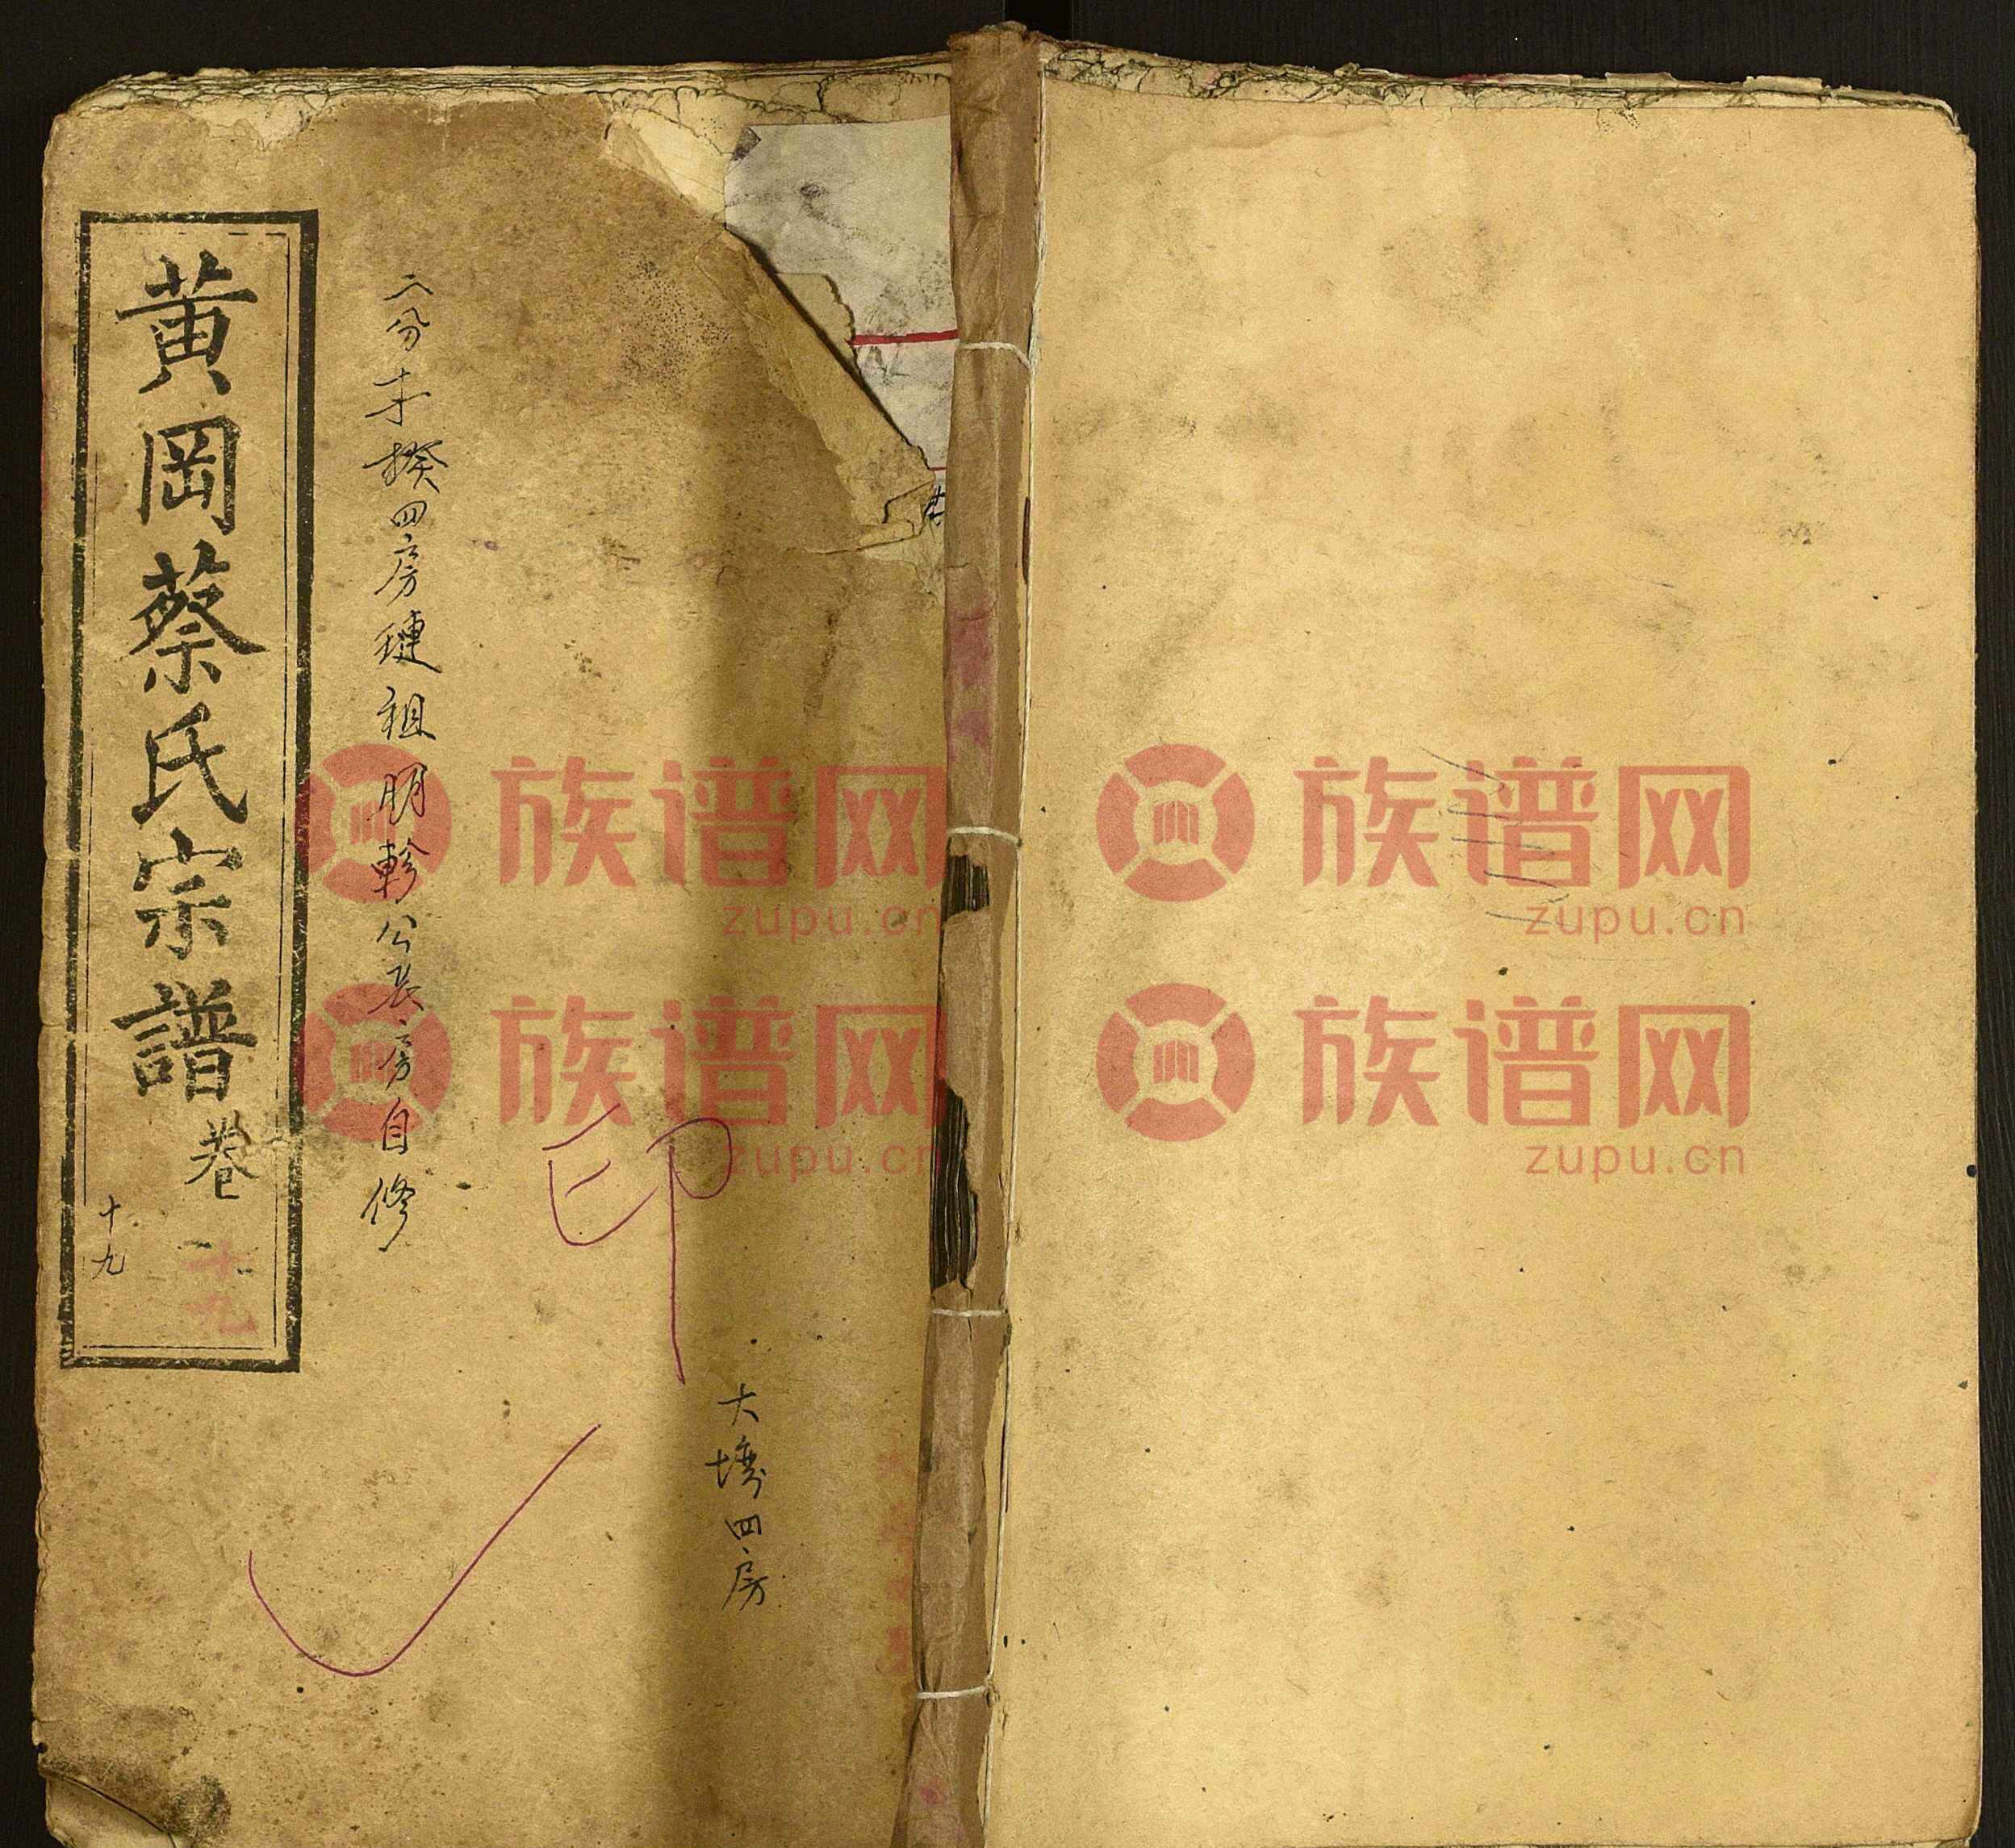 黄岡蔡氏宗譜卷
十九
十九
二分才揆四房璉祖朋軫公長房自修
印
大塆四房
族谱网
zupu.cn
族谱网
zupu.cn
族谱网
zupu.cn
族谱网
zupu.cn